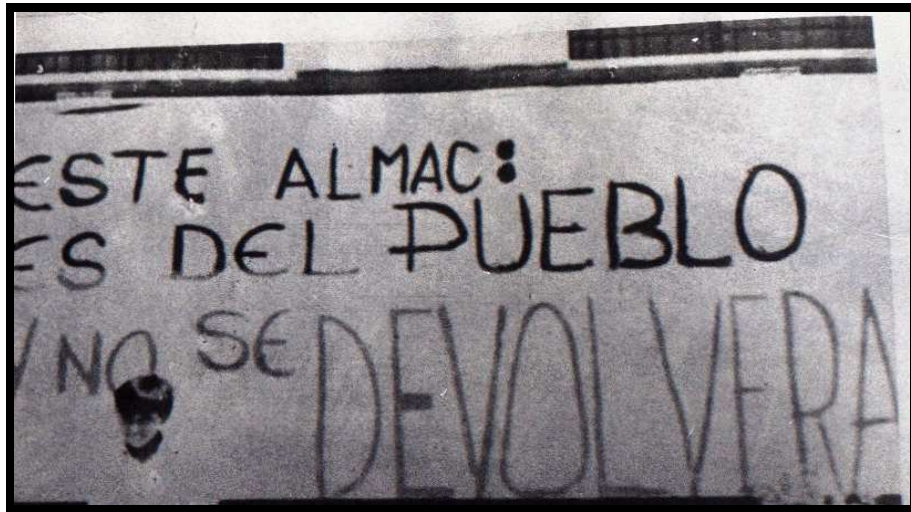 ESTE ALMAC:
ES DEL PUEBLO
Y NO SE DEVOLVERA